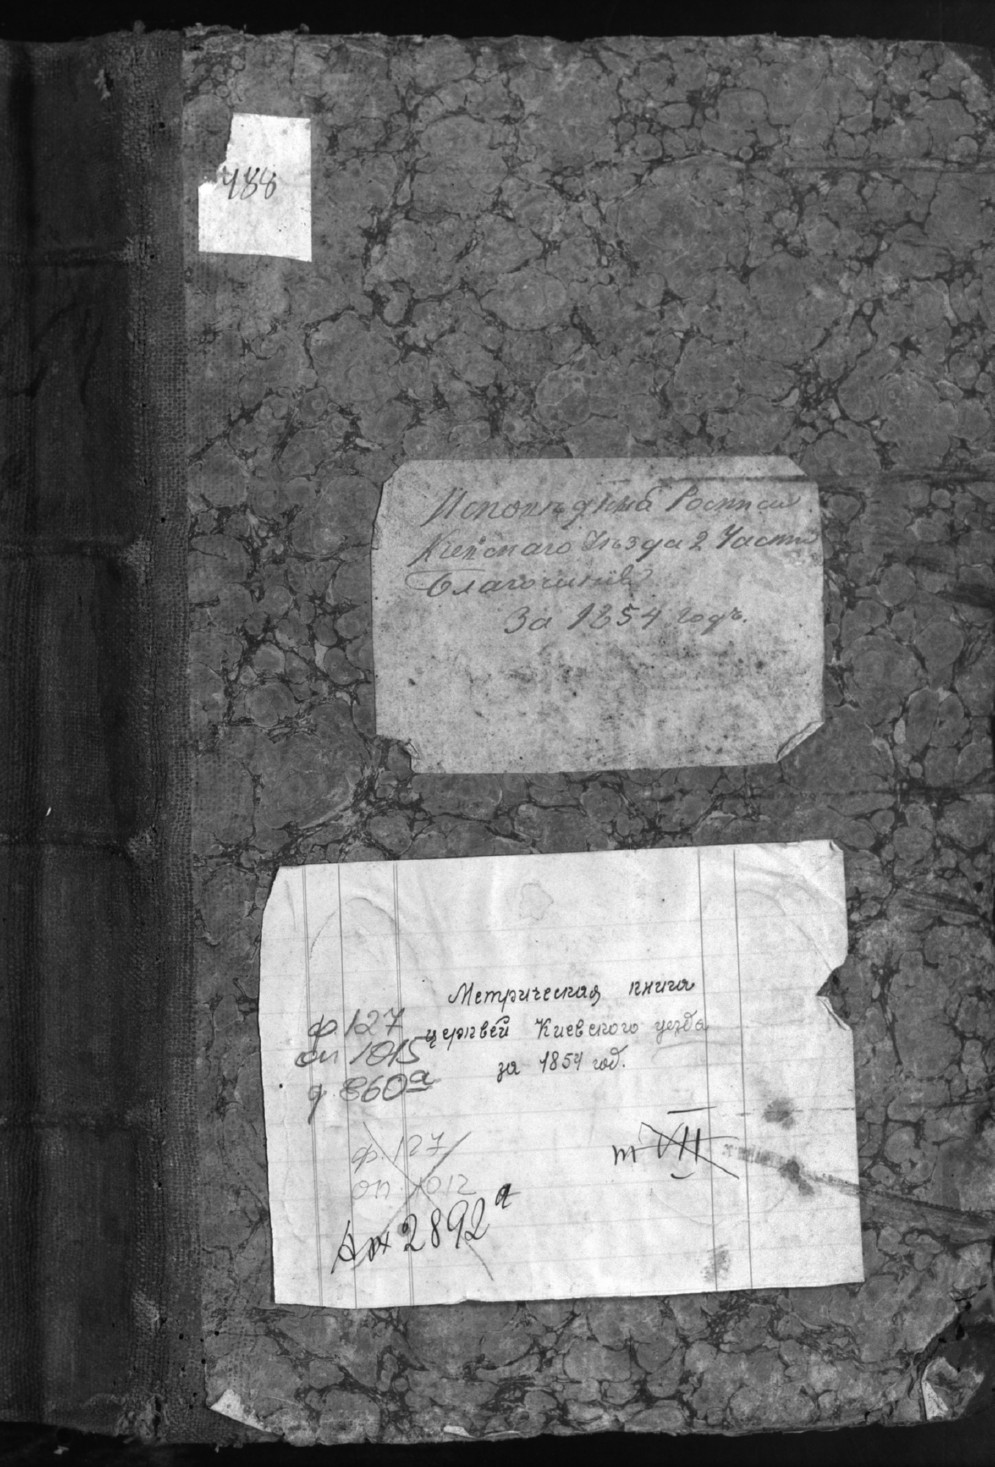 488
Исповѣдныя Росписи
Кіевскаго Уѣзда 2 Части
Благочинія
За 1854 годъ.
Метрическая книга
церквей Киевского уезда
за 1854 год.
ф. 127
оп 1015
д. 860а
ф. 127
оп. 1012
т VII
2892а